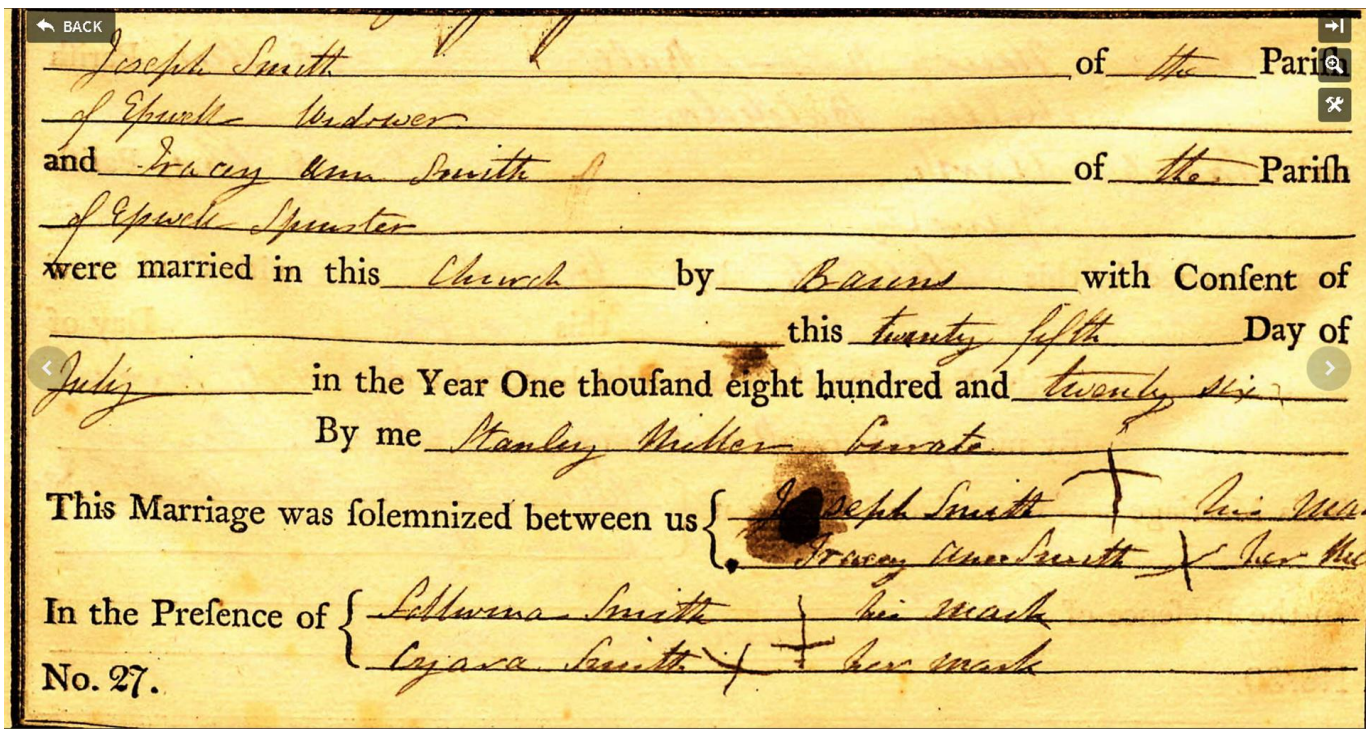 BACK
Joseph Smith of the Pariſh
of Epwell Widower
and Tracey Ann Smith of the Pariſh
of Epwell Spinster
were married in this Church by Banns with Conſent of
this twenty fifth Day of
July in the Year One thouſand eight hundred and twenty six
By me Stanley Miller Curate
This Marriage was ſolemnized between us { Joseph Smith his ma
Tracey Ann Smith X her
In the Preſence of { Smith his mark
Smith X her mark
No. 27.